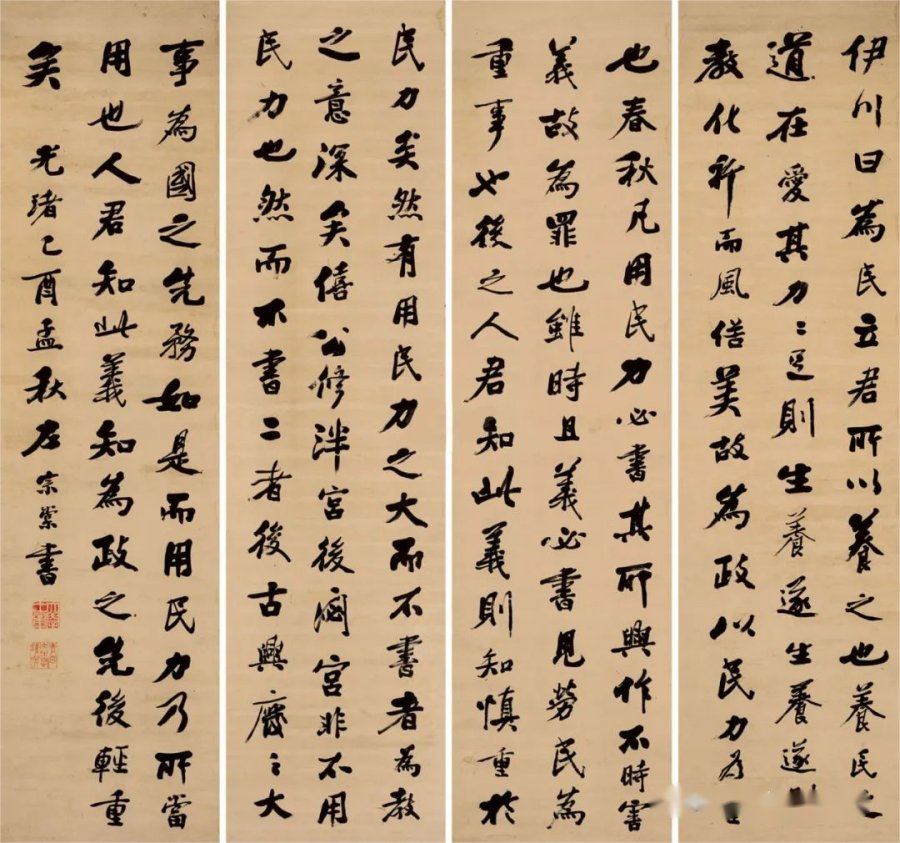 伊川曰為民立君所以養之也養民之
道在愛其力〻足則生養遂生養遂則
教化行而風俗美故為政以民力為
也春秋凡用民力必書其所興作不時害
義故為罪也雖時且義必書見勞民為
重事也後之人君知此義則知慎重於
民力矣然有用民力之大而不書者為教
之意深矣僖公修泮宮後閟宮非不用
民力也然而不書二者後古興廢〻大
事為國之先務如是而用民力乃所當
用也人君知此義知為政之先後輕重
矣 光緒乙酉孟秋左宗棠書